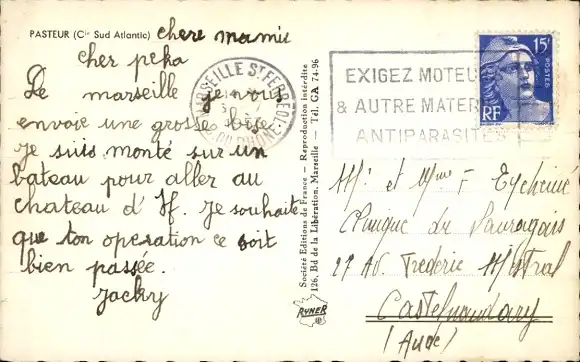 PASTEUR (Cie Sud Atlantic)
chere mamie
cher peka
De marseille je vous
envoie une grosse bise
je suis monté sur un
bateau pour aller au
chateau d' If. je souhaite
que ton operation ce soit
bien passée.
Jacky
MARSEILLE ST FERREOL
B. DU RHONE
EXIGEZ MOTEU
& AUTRE MATER
ANTIPARASITES
15F
POSTES
RF
Société Editions de France - Reproduction interdite
126, Bd de la Libération, Marseille - Tél. GA 74-96
RYNER
Mr et Mme F Eycheinié
Clinique du Lauragais
27 AV. Frederic Mistral
Castelnaudary
(Aude)